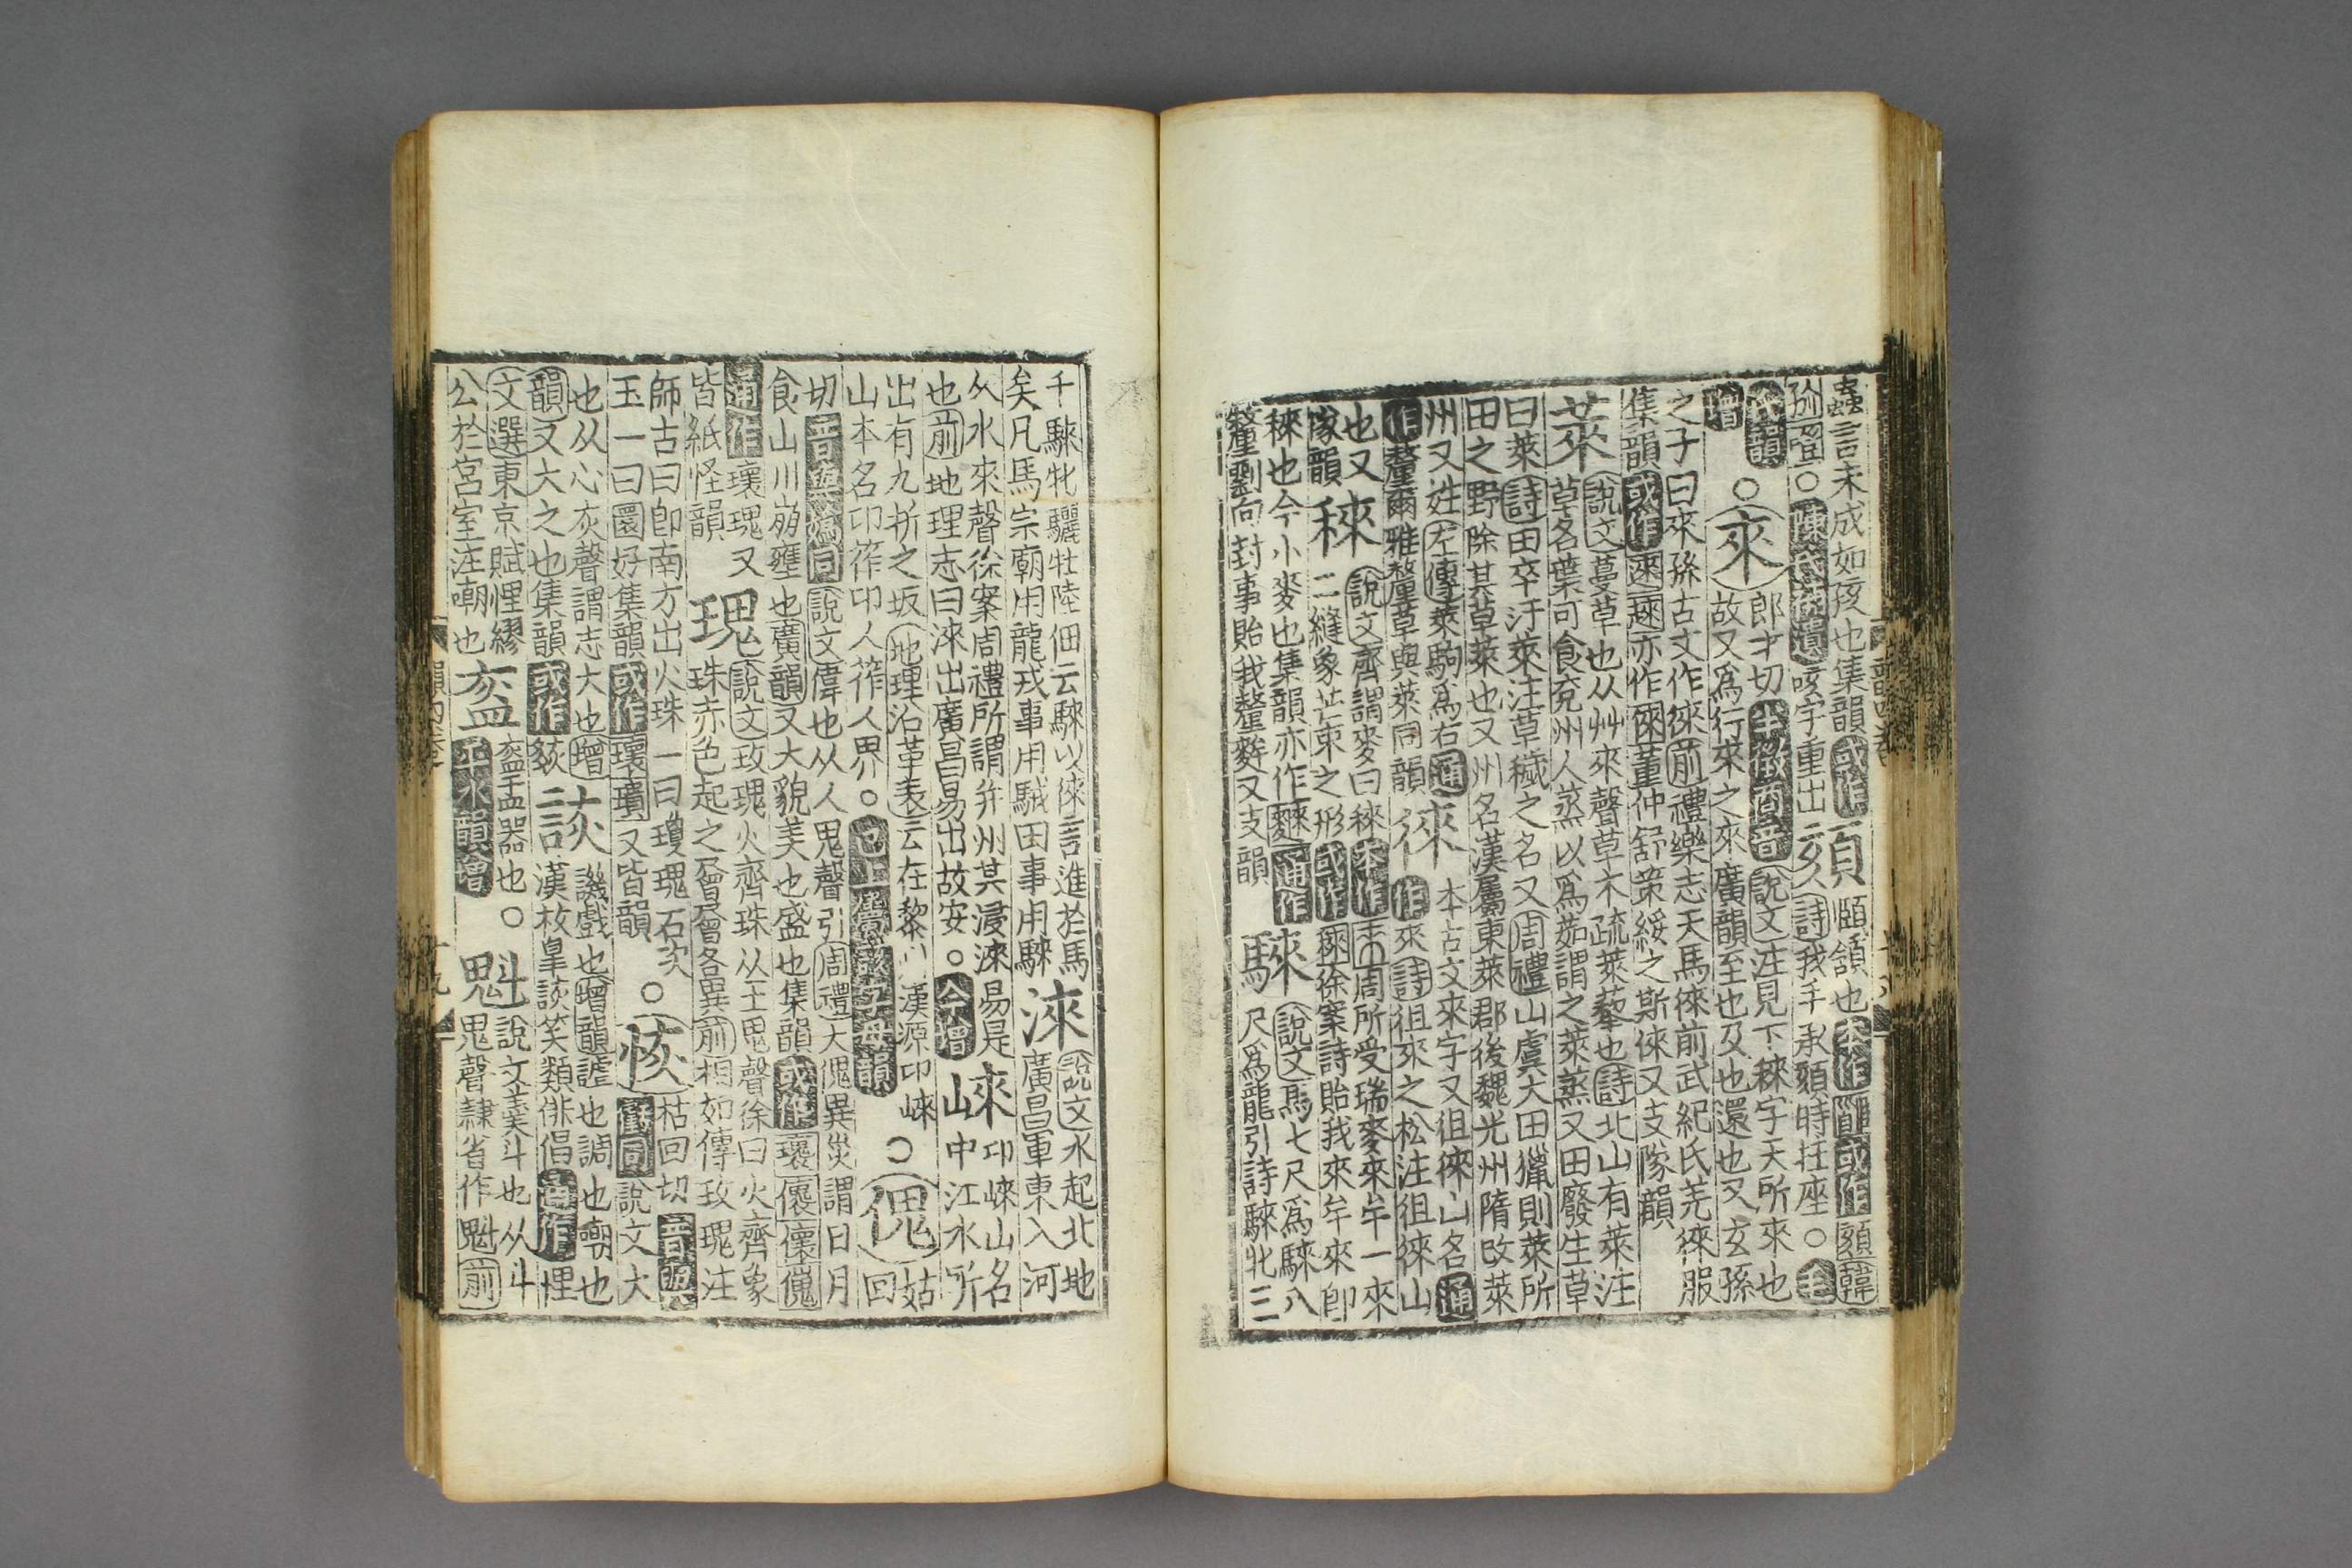 蟲言未成如孩也集韻或作
〇陳氏拾遺咳字重出
頦
頤頷也本作 或作 韓
詩我手承頦時拄座〇
氏韻
增
〇來
郎才切半徵商音說文注見下䅘字天所來也
故又爲行來之來廣韻至也及也還也又玄孫
之子曰來孫古文作徠前禮樂志天馬徠前武紀氐羌徠服
集韻或作逨 亦作倈董仲舒策綏之斯倈又支隊韻
萊
說文蔓草也从艸來聲草木疏萊藜也詩北山有萊注
草名葉可食兖州人蒸以爲茹謂之萊蒸又田廢生草
曰萊詩田卒汙萊注草穢之名又周禮山虞大田獵則萊所
田之野除其草萊也又州名漢屬東萊郡後魏光州隋改萊
州又姓左傳萊駒爲右通
作釐爾雅釐草與萊同韻
徠
本古文來字又徂徠山名通
作來詩徂來之松注徂徠山
也又
隊韻
䅘
說文齊謂麥曰䅘本作來周所受瑞麥來牟一來
二縫象芒朿之形或作 徐案詩貽我來牟來卽
䅘也今小麥也集韻亦作 通作
釐劉向封事貽我釐麰又支韻
騋
說文馬七尺爲騋八
尺爲龍引詩騋牝三
千騋牝驪牡陸佃云騋以徠言進於馬
矣凡馬宗廟用龍戎事用駥田事用騋
淶
說文水起北地
廣昌東入河
从水來聲徐案周禮所謂幷州其浸淶易是
也前地理志曰淶出廣昌易出故安〇今增
崍
卭崍山名
山中江水所
出有九折之坂地理沿革表云在黎州漢源卭崍
山本名卭筰卭人筰人界〇已上屬該字母韻
〇傀
姑
回
切音與嬀同說文偉也从人鬼聲引周禮大傀異災謂日月
食山川崩壅也廣韻又大貌美也盛也集韻或作瓌 儴傹
通作瓌瑰又
皆紙怪韻
瑰
說文玫瑰火齊珠从玉鬼聲徐曰火齊象
珠赤色起之曾曾各異前相如傳玫瑰注
師古曰卽南方出火珠一曰瓊瑰石次
玉一曰圜好集韻或作瓌璝又皆韻
〇恢
枯回切音與
虧同說文大
也从心灰聲謂志大也增
韻又大之也集韻或作
詼
譏戲也增韻謔也調也嘲也
漢枚皐詼笑類俳倡通作悝
文選東京賦悝繆
公於宮室注嘲也
盔
盔盂器也〇
平水韻增
魁
說文羹斗也从斗
鬼聲隷省作魁前